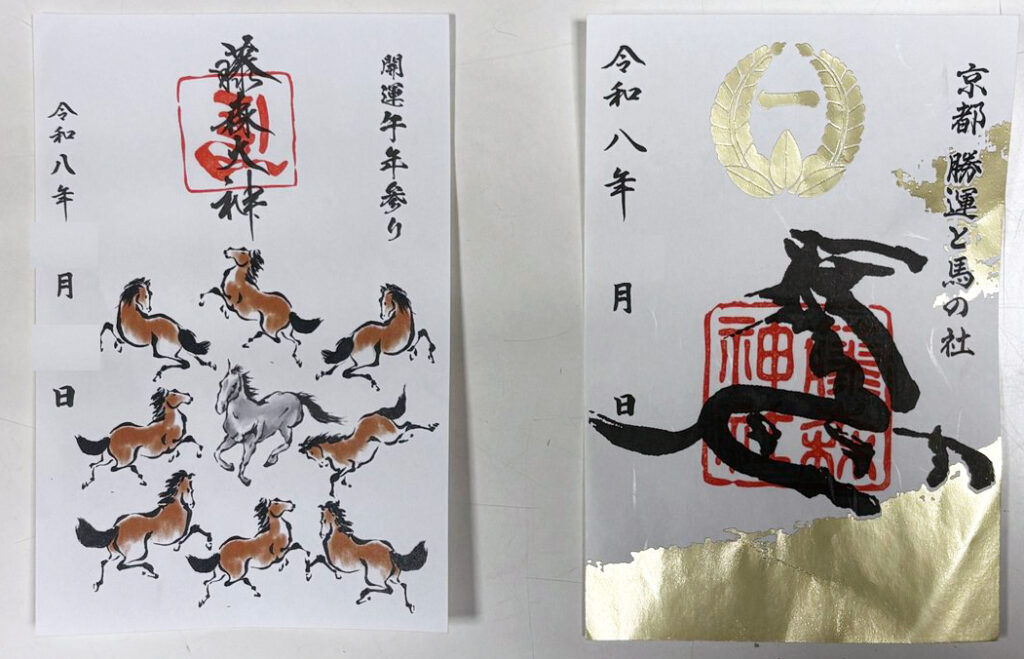 開運午年参り
藤森大神
令和八年 月 日
京都 勝運と馬の社
一
藤森神社
令和八年 月 日